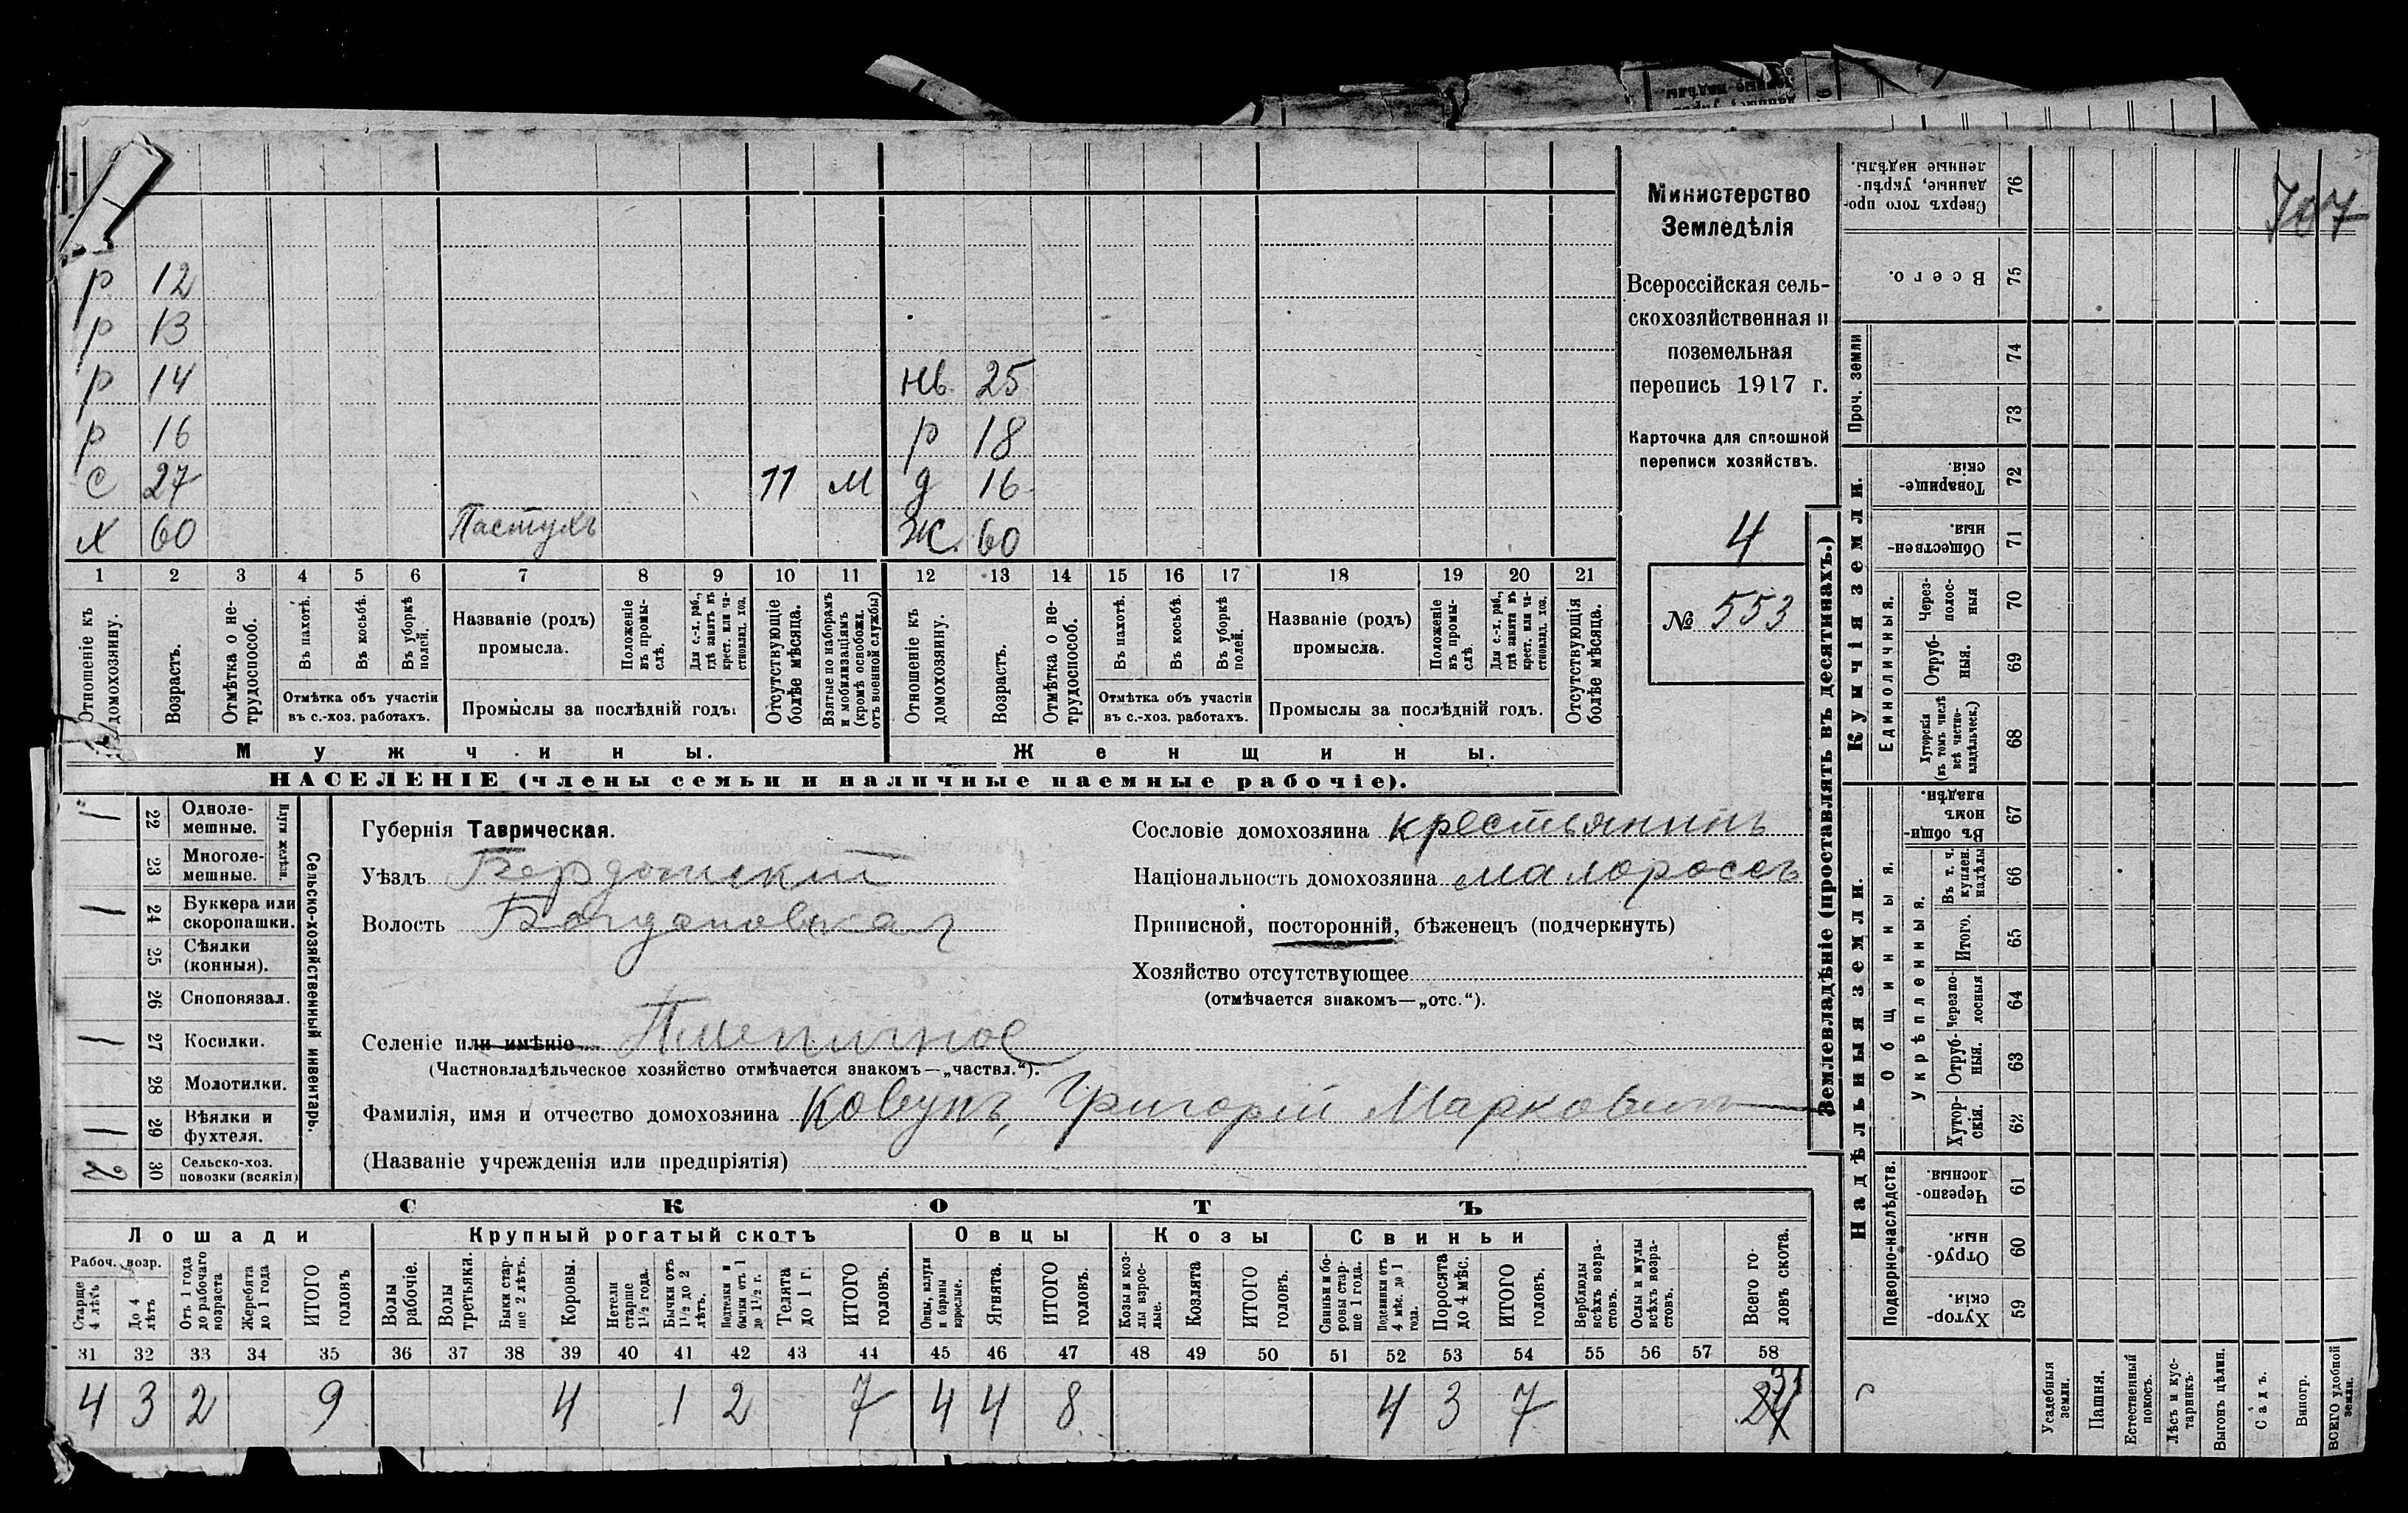 707
р 12
р 13
р 14 нв. 25
р 16 р 18
с 27 11 м д 16
х 60 Пастухъ Ж. 60
1 2 3 4 5 6 7 8 9 10 11 12 13 14 15 16 17 18 19 20 21
Отношеніе къ домохозяину.
Возрастъ.
Отмѣтка о не-трудоспособ.
Въ пахотѣ.
Въ косьбѣ.
Въ уборкѣ полей.
Отмѣтка объ участіи въ с.-хоз. работахъ.
Названіе (родъ) промысла.
Положеніе въ промы-слѣ.
Для с.-х. раб., гдѣ занятъ въ крест. или ча-стновлад. хоз.
Промыслы за послѣдній годъ.
Отсутствующіе болѣе мѣсяца.
Взятые по наборамъ и мобилизаціямъ (кромѣ освобожд. отъ военной службы)
Отношеніе къ домохозяину.
Возрастъ.
Отмѣтка о не-трудоспособ.
Въ пахотѣ.
Въ косьбѣ.
Въ уборкѣ полей.
Отмѣтка объ участіи въ с.-хоз. работахъ.
Названіе (родъ) промысла.
Положеніе въ промы-слѣ.
Для с.-х. раб., гдѣ занята въ крест. или ча-стновлад. хоз.
Промыслы за послѣдній годъ.
Отсутствующія болѣе мѣсяца.
Мужчины. Женщины.
НАСЕЛЕНІЕ (члены семьи и наличные наемные рабочіе).
Министерство
Земледѣлія
Всероссійская сель-
скохозяйственная и
поземельная
перепись 1917 г.
Карточка для сплошной
переписи хозяйствъ.
4
№ 553
Сельско-хозяйственный инвентарь.
Плуги желѣзн.
1 22 Одноле-мешные.
23 Многоле-мешные.
1 24 Буккера или скоропашки.
25 Сѣялки (конныя).
26 Сноповязал.
1 27 Косилки.
28 Молотилки.
1 29 Вѣялки и фухтеля.
2 30 Сельско-хоз. повозки (всякія)
Губернія Таврическая.
Уѣздъ Бердянскій
Волость Богдановская
Селеніе или имѣніе Пшеничное
(Частновладѣльческое хозяйство отмѣчается знакомъ—„частвл.“).
Фамилія, имя и отчество домохозяина Ковунъ, Григорій Марковичъ
(Названіе учрежденія или предпріятія)
Сословіе домохозяина крестьянинъ
Національность домохозяина малороссъ
Приписной, посторонній, бѣженецъ (подчеркнуть)
Хозяйство отсутствующее
(отмѣчается знакомъ—„отс.“).
СКОТЪ
Лошади Крупный рогатый скотъ Овцы Козы Свиньи
Рабоч. возр.
Старше 4 лѣтъ
До 4 лѣтъ
Отъ 1 года до рабочаго возраста
Жеребята до 1 года
ИТОГО головъ
Волы рабочіе.
Волы третьяки.
Быки стар-ше 2 лѣтъ.
Коровы.
Нетели старше 1½ года.
Бычки отъ 1½ до 2 лѣтъ.
Подтелки и бычки отъ 1 до 1½ г.
Телята до 1 г.
ИТОГО головъ.
Овцы, валухи и бараны взрослые.
Ягнята.
ИТОГО головъ.
Козы и коз-лы взрос-лые.
Козлята
ИТОГО головъ.
Свиньи и бо-ровы стар-ше 1 года.
Подсвинки отъ 4 мѣс. до 1 года.
Поросята до 4 мѣс.
ИТОГО головъ.
Верблюды всѣхъ возра-стовъ.
Ослы и мулы всѣхъ возра-стовъ.
Всего го-ловъ скота.
31 32 33 34 35 36 37 38 39 40 41 42 43 44 45 46 47 48 49 50 51 52 53 54 55 56 57 58
4 3 2 9 4 1 2 7 4 4 8 4 3 7 24 31
Землевладѣніе (проставлять въ десятинахъ.)
Купчія земли.
Надѣльныя земли.
Проч. земли
Единоличныя.
Общинныя.
Укрѣпленныя.
Подворно-наслѣдств.
76 Сверхъ того про-данные, укрѣп-ленные надѣлы.
75 Всего.
74
73
72 Товарище-скія.
71 Обществен-ныя.
70 Черезполос-ныя
69 Отруб-ныя.
68 Хуторскія (въ томъ числѣ всѣ частно-владѣльческ.)
67 Въ общин-номъ владѣн.
66 Въ т. ч. куплен. надѣлы
65 Итого.
64 Черезпо-лосныя
63 Отруб-ныя.
62 Хутор-скія.
61 Черезпо-лосныя
60 Отруб-ныя.
59 Хутор-скія.
Усадебныя земли.
Пашня.
Естественный покосъ.
Лѣсъ и кус-тарникъ.
Выгонъ цѣлин.
Садъ.
Виногр.
ВСЕГО удобной земли.